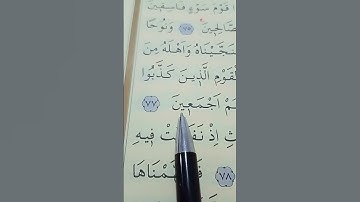 ا قَوْمَ سَوْءٍ فَاسِقٖينَ
الصَّالِحٖينَ ﴿٧٥﴾ وَنُوحًا
فَنَجَّيْنَاهُ وَاَهْلَهُ مِنَ
الْقَوْمِ الَّذٖينَ كَذَّبُوا
اَجْمَعٖينَ ﴿٧٧﴾
اِذْ نَفَشَتْ فٖيهِ
﴿٧٨﴾ فَفَهَّمْنَاهَا